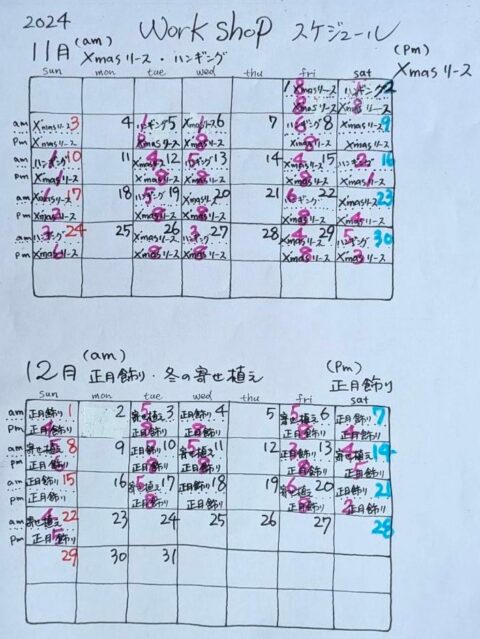 2024 Work shop スケジュール
11月 (am) Xmasリース・ハンギング (Pm) Xmasリース
sun mon tue wed thu fri sat
1 Xmasリース ハンギング 2
8 Xmasリース Xmasリース
am Xmasリース 3 4 ハンギング 5 Xmasリース 6 7 ハンギング 8 Xmasリース 9
pm Xmasリース Xmasリース Xmasリース Xmasリース Xmasリース
am ハンギング 10 11 Xmasリース 12 ハンギング 13 14 Xmasリース 15 ハンギング 16
pm Xmasリース Xmasリース Xmasリース Xmasリース Xmasリース
am Xmasリース 17 18 ハンギング 19 Xmasリース 20 21 ハンギング 22 Xmasリース 23
pm Xmasリース Xmasリース Xmasリース Xmasリース Xmasリース
am ハンギング 24 25 Xmasリース 26 ハンギング 27 28 Xmasリース 29 ハンギング 30
pm Xmasリース Xmasリース Xmasリース Xmasリース Xmasリース
12月 (am) 正月飾り・冬の寄せ植え (Pm) 正月飾り
sun mon tue wed thu fri sat
am 正月飾り 1 2 寄せ植え 3 正月飾り 4 5 寄せ植え 6 正月飾り 7
pm 正月飾り 正月飾り 正月飾り 正月飾り 正月飾り
am 寄せ植え 8 9 正月飾り 10 寄せ植え 11 12 正月飾り 13 寄せ植え 14
pm 正月飾り 正月飾り 正月飾り 正月飾り 正月飾り
am 正月飾り 15 16 寄せ植え 17 正月飾り 18 19 寄せ植え 20 正月飾り 21
pm 正月飾り 正月飾り 正月飾り 正月飾り 正月飾り
am 寄せ植え 22 23 24 25 26 27 28
pm 正月飾り
29 30 31